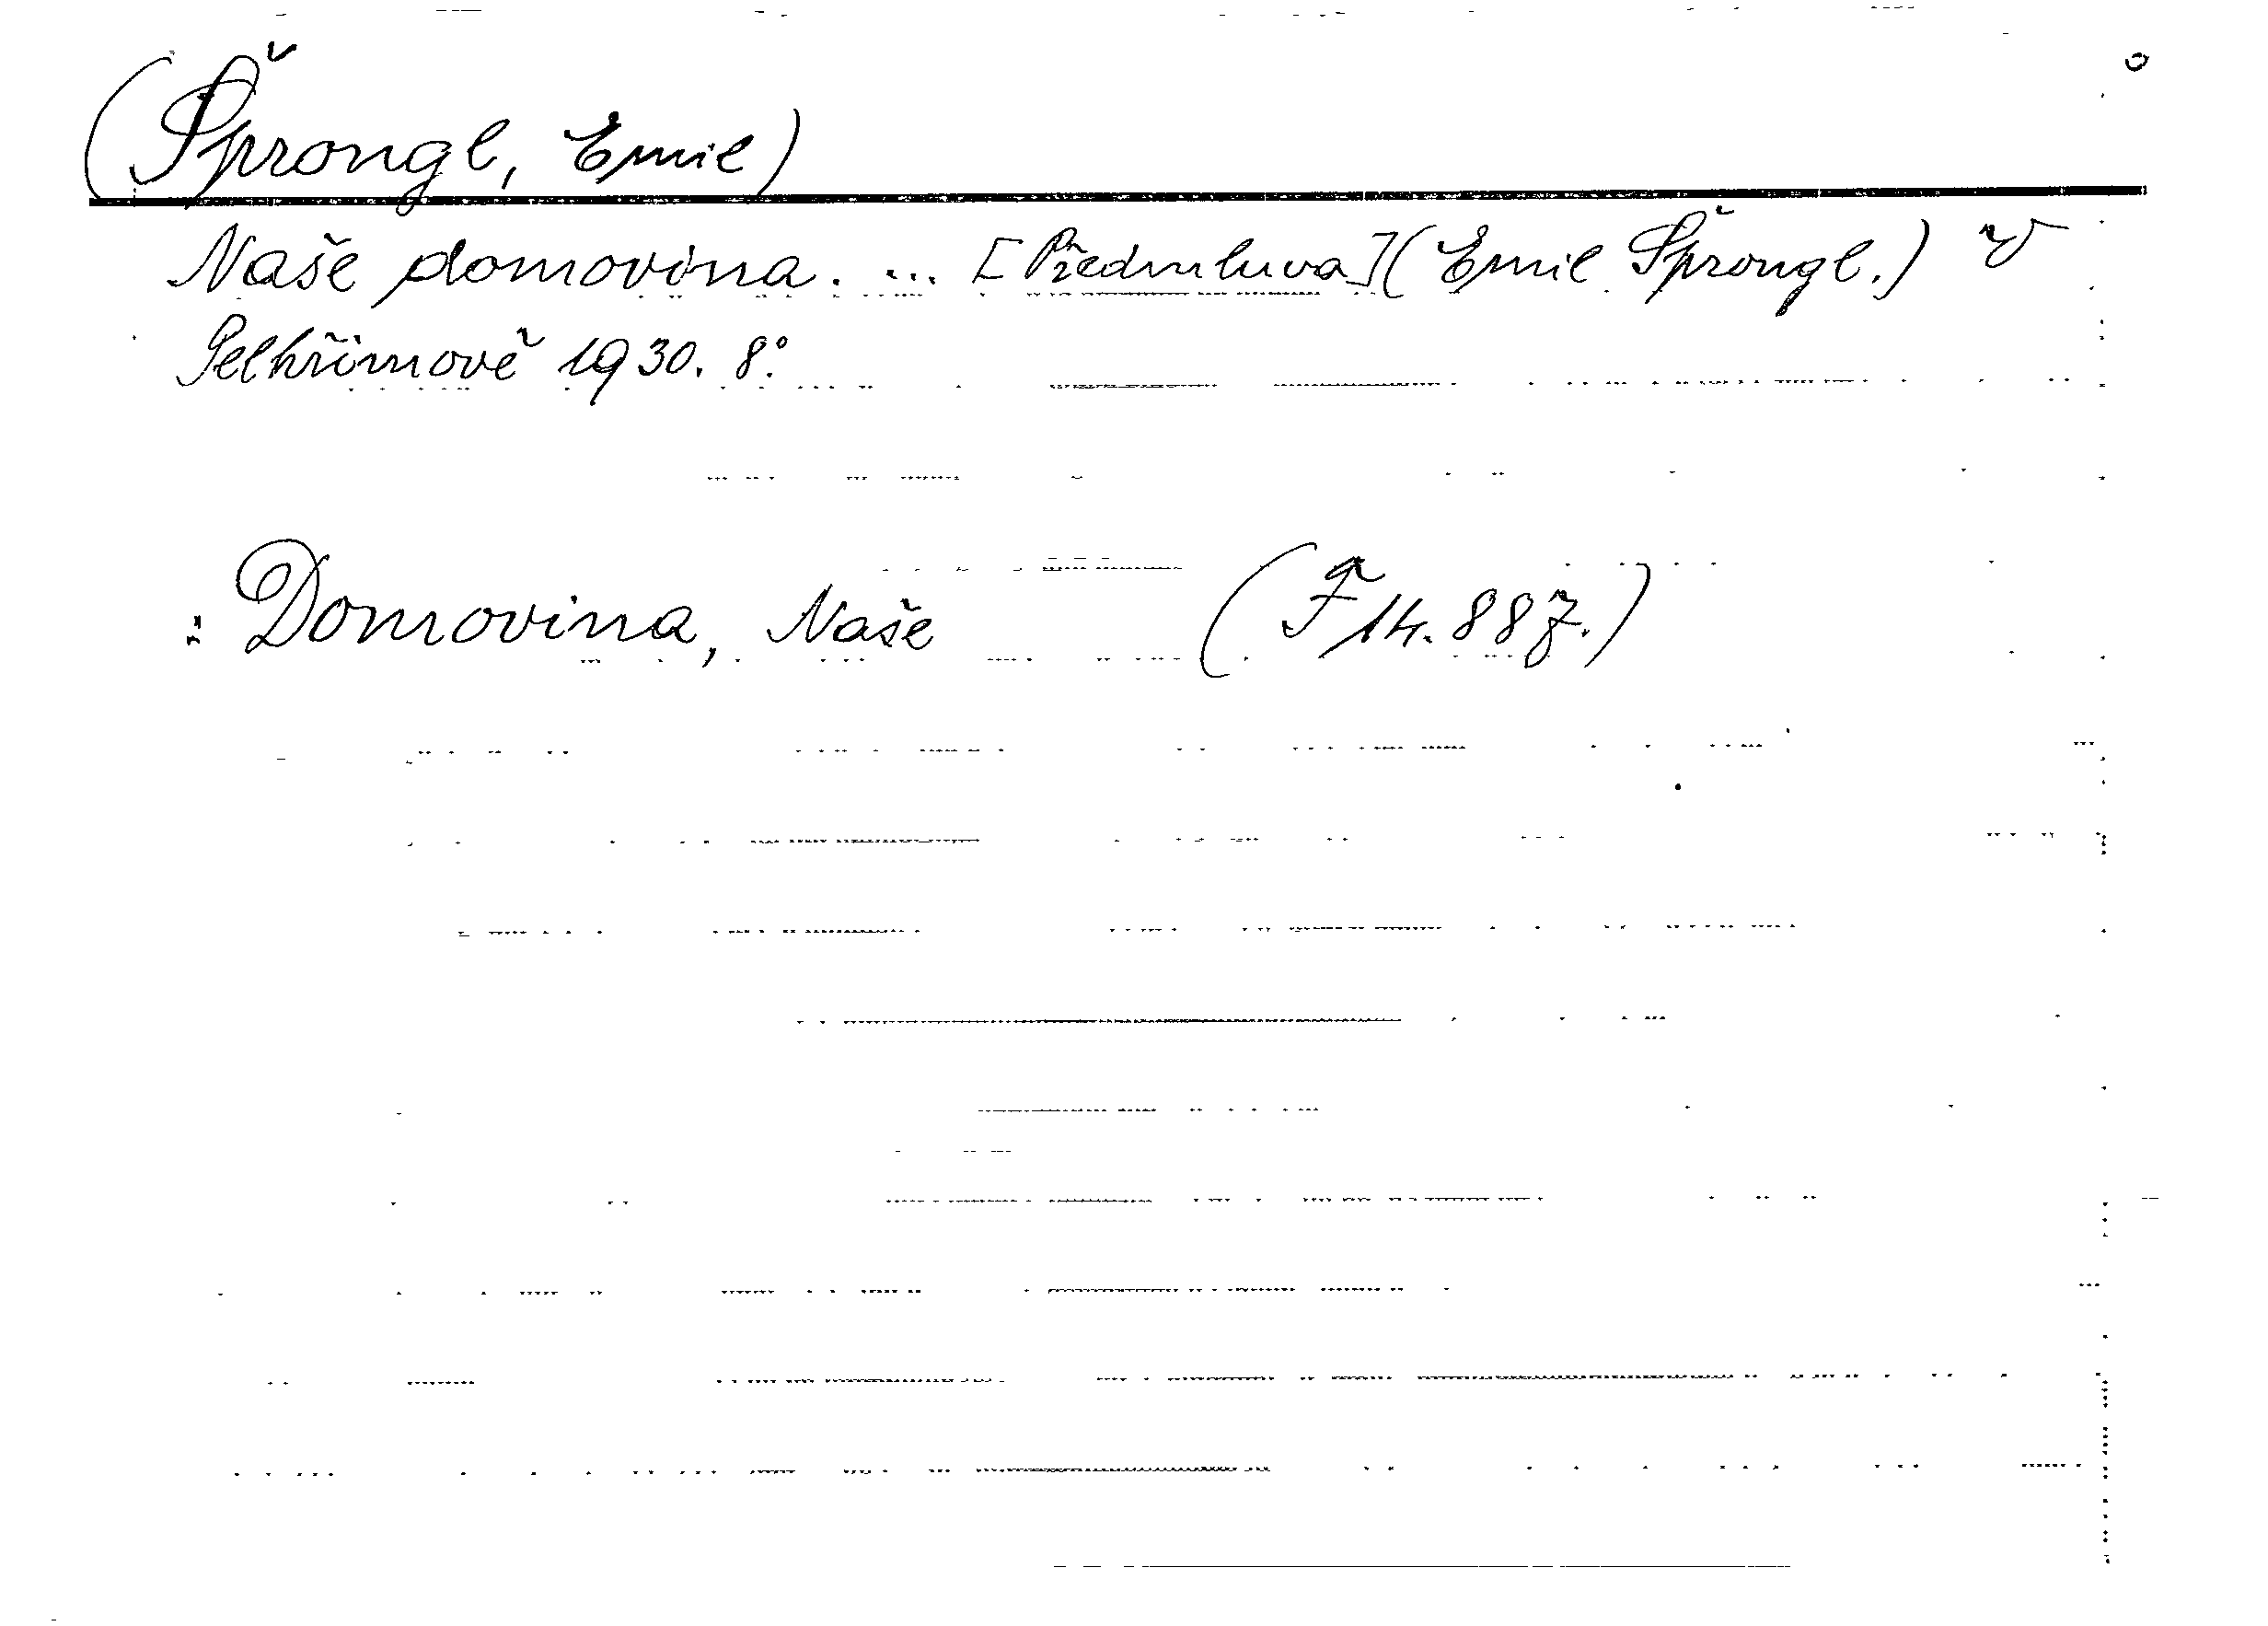 (Šprongl, Emil)
Naše domovina. ... [Předmluva] (Emil Šprongl.) V
Pelhřimově 1930. 8°.
: Domovina, Naše (F 14.887.)